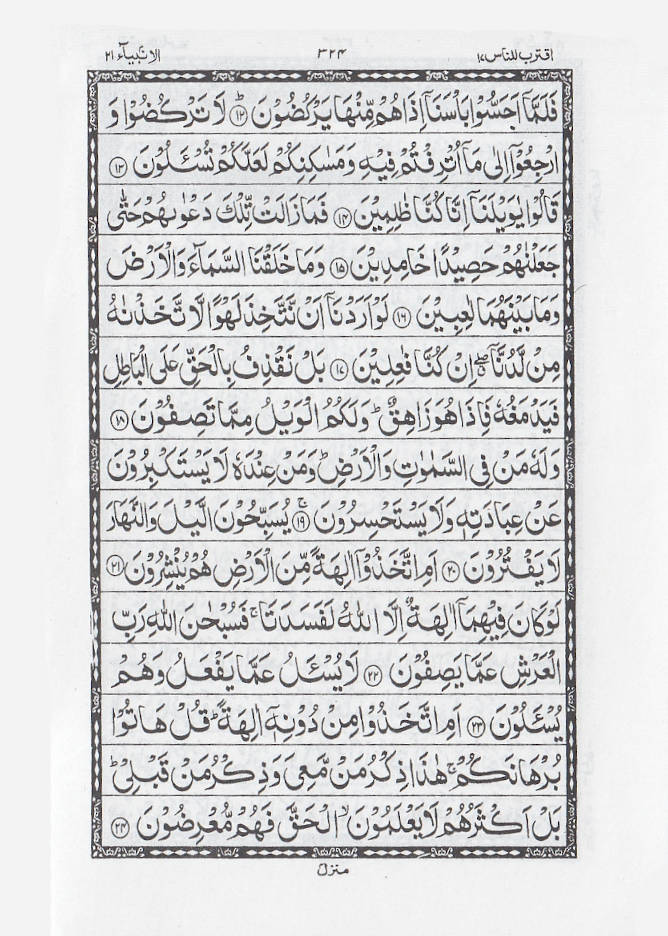 اقترب للناس ١٧ ٣٢٤ الانبیآء ٢١
فَلَمَّاۤ اَحَسُّوْا بَاْسَنَاۤ اِذَا هُمْ مِّنْهَا یَرْكُضُوْنَ ؕ‏ ﴿۱۲﴾ لَا تَرْكُضُوْا وَ
ارْجِعُوْۤا اِلٰی مَاۤ اُتْرِفْتُمْ فِیْهِ وَ مَسٰكِنِكُمْ لَعَلَّكُمْ تُسْـَٔلُوْنَ ﴿۱۳﴾
قَالُوْا یٰوَیْلَنَاۤ اِنَّا كُنَّا ظٰلِمِیْنَ ﴿۱۴﴾ فَمَا زَالَتْ تِّلْكَ دَعْوٰىهُمْ حَتّٰی
جَعَلْنٰهُمْ حَصِیْدًا خَامِدِیْنَ ﴿۱۵﴾ وَ مَا خَلَقْنَا السَّمَآءَ وَ الْاَرْضَ
وَ مَا بَیْنَهُمَا لٰعِبِیْنَ ﴿۱۶﴾ لَوْ اَرَدْنَاۤ اَنْ نَّتَّخِذَ لَهْوًا لَّا تَّخَذْنٰهُ
مِنْ لَّدُنَّاۤ ۖۗ اِنْ كُنَّا فٰعِلِیْنَ ﴿۱۷﴾ بَلْ نَقْذِفُ بِالْحَقِّ عَلَی الْبَاطِلِ
فَیَدْمَغُهٗ فَاِذَا هُوَ زَاهِقٌ ؕ وَ لَكُمُ الْوَیْلُ مِمَّا تَصِفُوْنَ ﴿۱۸﴾
وَ لَهٗ مَنْ فِی السَّمٰوٰتِ وَ الْاَرْضِ ؕ وَ مَنْ عِنْدَهٗ لَا یَسْتَكْبِرُوْنَ
عَنْ عِبَادَتِهٖ وَ لَا یَسْتَحْسِرُوْنَ ۚ ﴿۱۹﴾ یُسَبِّحُوْنَ الَّیْلَ وَ النَّهَارَ
لَا یَفْتُرُوْنَ ﴿۲۰﴾ اَمِ اتَّخَذُوْۤا اٰلِهَةً مِّنَ الْاَرْضِ هُمْ یُنْشِرُوْنَ ﴿۲۱﴾
لَوْ كَانَ فِیْهِمَاۤ اٰلِهَةٌ اِلَّا اللّٰهُ لَفَسَدَتَا ۚ فَسُبْحٰنَ اللّٰهِ رَبِّ
الْعَرْشِ عَمَّا یَصِفُوْنَ ﴿۲۲﴾ لَا یُسْـَٔلُ عَمَّا یَفْعَلُ وَ هُمْ
یُسْـَٔلُوْنَ ﴿۲۳﴾ اَمِ اتَّخَذُوْا مِنْ دُوْنِهٖۤ اٰلِهَةً ؕ قُلْ هَاتُوْا
بُرْهَانَكُمْ ۚ هٰذَا ذِكْرُ مَنْ مَّعِیَ وَ ذِكْرُ مَنْ قَبْلِیْ ؕ
بَلْ اَكْثَرُهُمْ لَا یَعْلَمُوْنَ ۙ الْحَقَّ فَهُمْ مُّعْرِضُوْنَ ﴿۲۴﴾
منزل